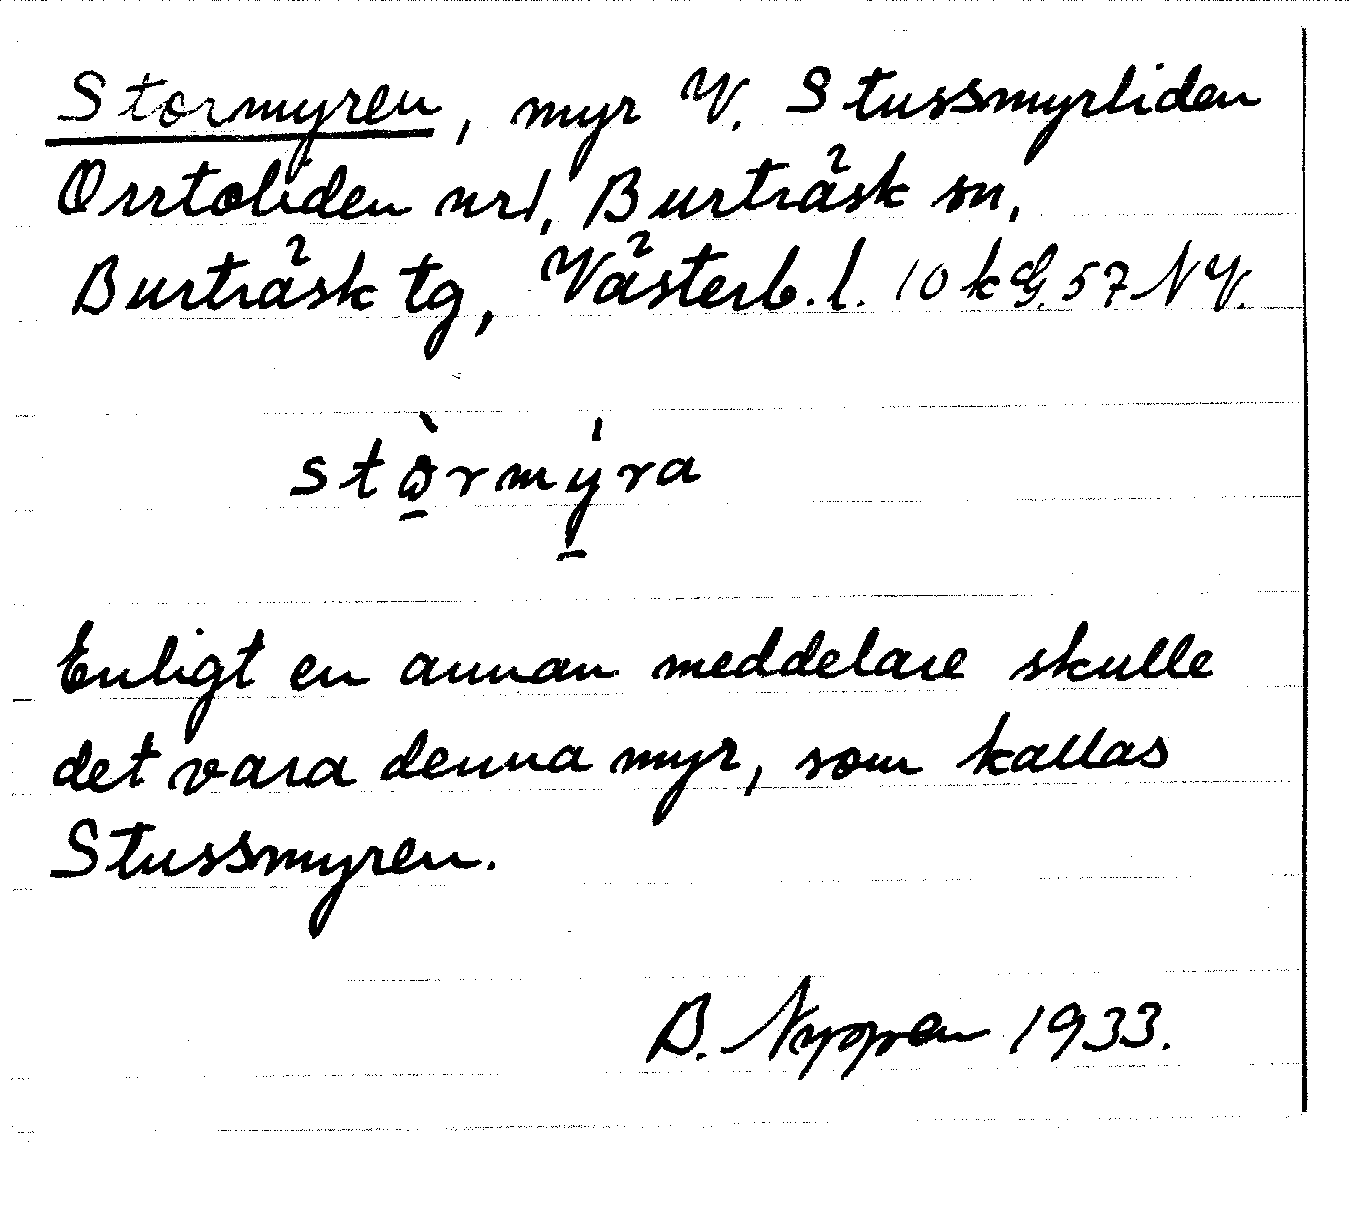 Stormyren, myr V. Stussmyrliden
Orrtoliden nr1, Burträsk sn,
Burträsk tg, Västerb. l. 10 k G. 57 NV.
stòrmýra
Enligt en annan meddelare skulle
det vara denna myr, som kallas
Stussmyren.
B. 1933.